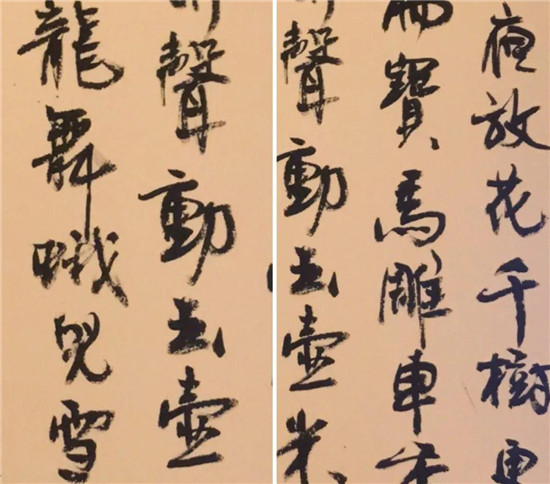 聲動玉壺
龍舞蛾兒雪
夜放花千樹更
雨寶馬雕車
聲動玉壺光